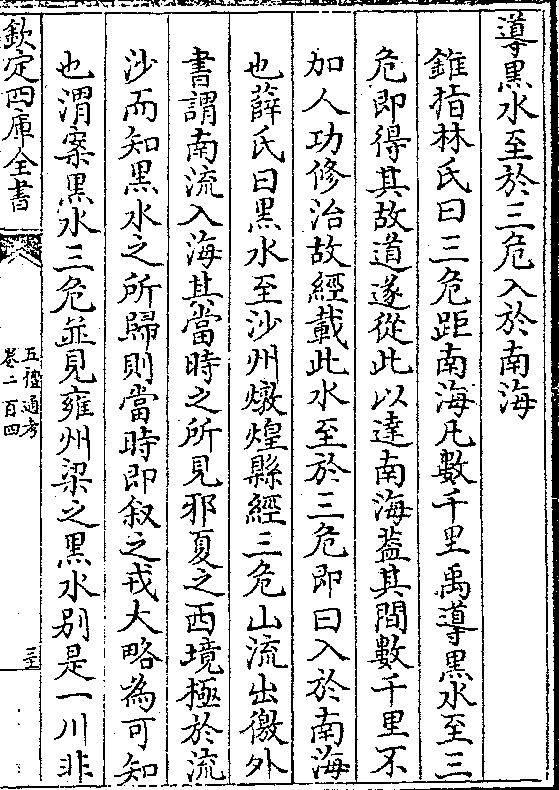 導黒水至於三危入於南海
錐指林氏曰三危距南海凡數千里禹導黒水至三
危即得其故道遂從此以達南海蓋其間數千里不
加人功修治故經載此水至於三危即曰入於南海
也薛氏曰黒水至沙州燉煌縣經三危山流出徼外
書謂南流入海其當時之所見邪夏之西境極於流
沙而知黒水之所歸則當時即叙之戎大略為可知
也渭案黒水三危並見雍州梁之黒水别是一川非
欽定四庫全書
五禮通考
卷二百四